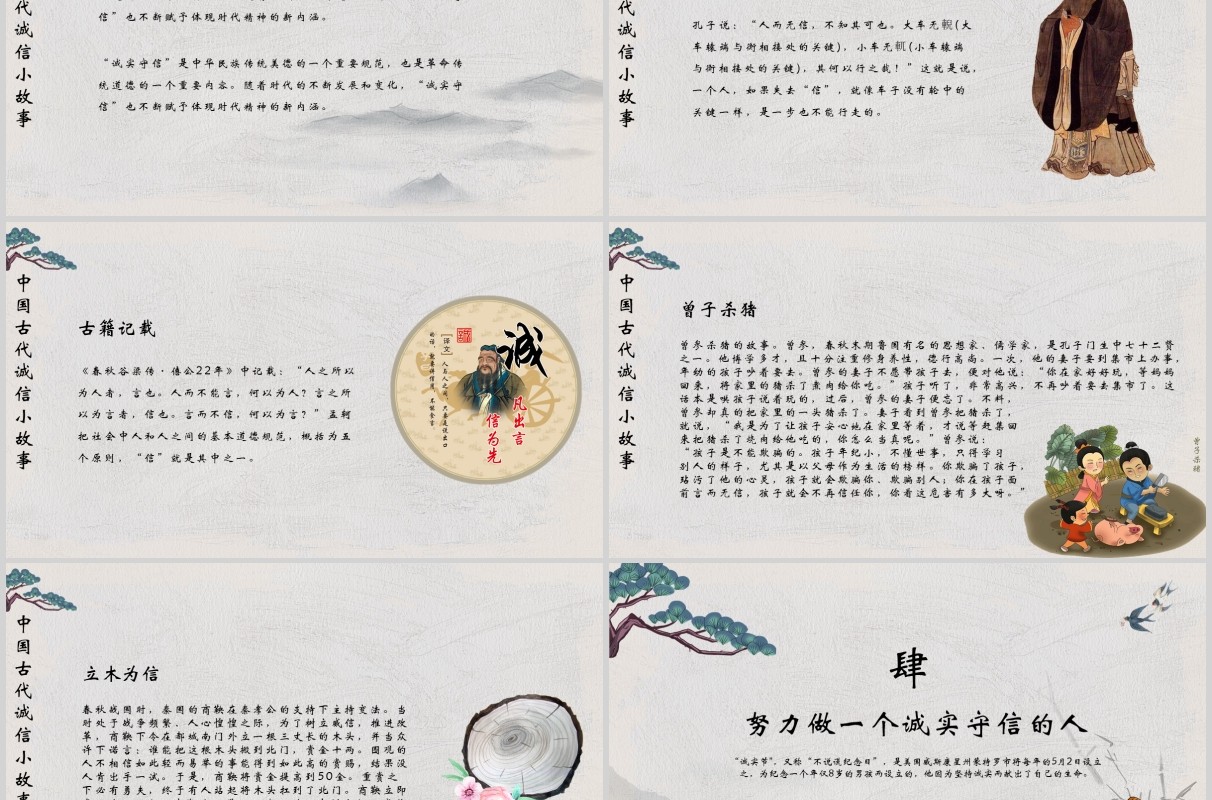 代诚信小故事
信”也不断赋予体现时代精神的新内涵。
“诚实守信”是中华民族传统美德的一个重要规范，也是革命传
统道德的一个重要内容。随着时代的不断发展和变化，“诚实守
信”也不断赋予体现时代精神的新内涵。
代诚信小故事
孔子说：“人而无信，不知其可也。大车无輗(大
车辕端与衡相接处的关键)，小车无軏(小车辕端
与衡相接处的关键)，其何以行之哉！”这就是说，
一个人，如果失去“信”，就像车子没有轮中的
关键一样，是一步也不能行走的。
中国古代诚信小故事
古籍记载
《春秋谷梁传·僖公22年》中记载：“人之所以
为人者，言也。人而不能言，何以为人？言之所
以为言者，信也。言而不信，何以为言？”孟轲
把社会中人和人之间的基本道德规范，概括为五
个原则，“信”就是其中之一。
诚
凡出言
信为先
[译文]
中国古代诚信小故事
曾子杀猪
曾参杀猪的故事。曾参，春秋末期鲁国有名的思想家、儒学家，是孔子门生中七十二贤
之一。他博学多才，且十分注重修身养性，德行高尚。一次，他的妻子要到集市上办事，
年幼的孩子吵着要去。曾参的妻子不愿带孩子去，便对他说：“你在家好好玩，等妈妈
回来，将家里的猪杀了煮肉给你吃。”孩子听了，非常高兴，不再吵着要去集市了。这
话本是哄孩子说着玩的，过后，曾参的妻子便忘了。不料，
曾参却真的把家里的一头猪杀了。妻子看到曾参把猪杀了，
就说，“我是为了让孩子安心地在家里等着，才说等赶集回
来把猪杀了烧肉给他吃的，你怎么当真呢。”曾参说：
“孩子是不能欺骗的。孩子年纪小，不懂世事，只得学习
别人的样子，尤其是以父母作为生活的榜样。你欺骗了孩子，
玷污了他的心灵，孩子就会欺骗你、欺骗别人；你在孩子面
前言而无信，孩子就会不再信任你，你看这危害有多大呀。”
曾子杀猪
中国古代诚信小故事
立木为信
春秋战国时，秦国的商鞅在秦孝公的支持下主持变法。当
时处于战争频繁、人心惶惶之际，为了树立威信，推进改
革，商鞅下令在都城南门外立一根三丈长的木头，并当众
许下诺言：谁能把这根木头搬到北门，赏金十两。围观的
人不相信如此轻而易举的事能得到如此高的赏赐，结果没
人肯出手一试。于是，商鞅将赏金提高到50金。重赏之
下必有勇夫，终于有人站起将木头扛到了北门。商鞅立即
肆
努力做一个诚实守信的人
“诚实节”，又称“不说谎纪念日”，是美国威斯康星州蒙特罗市将每年的5月2日设立
之，为纪念一个年仅8岁的男孩而设立的，他因为坚持诚实而献出了自己的生命。